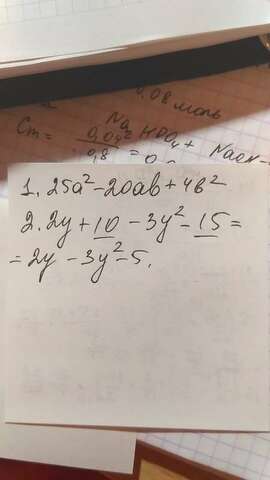 0,08 моль
Cm = 0,04 / 0,8 =
Na2HPO4 + NaOH
1. 25a² - 20ab + 4b²
2. 2y + 10 - 3y² - 15 =
= 2y - 3y² - 5.